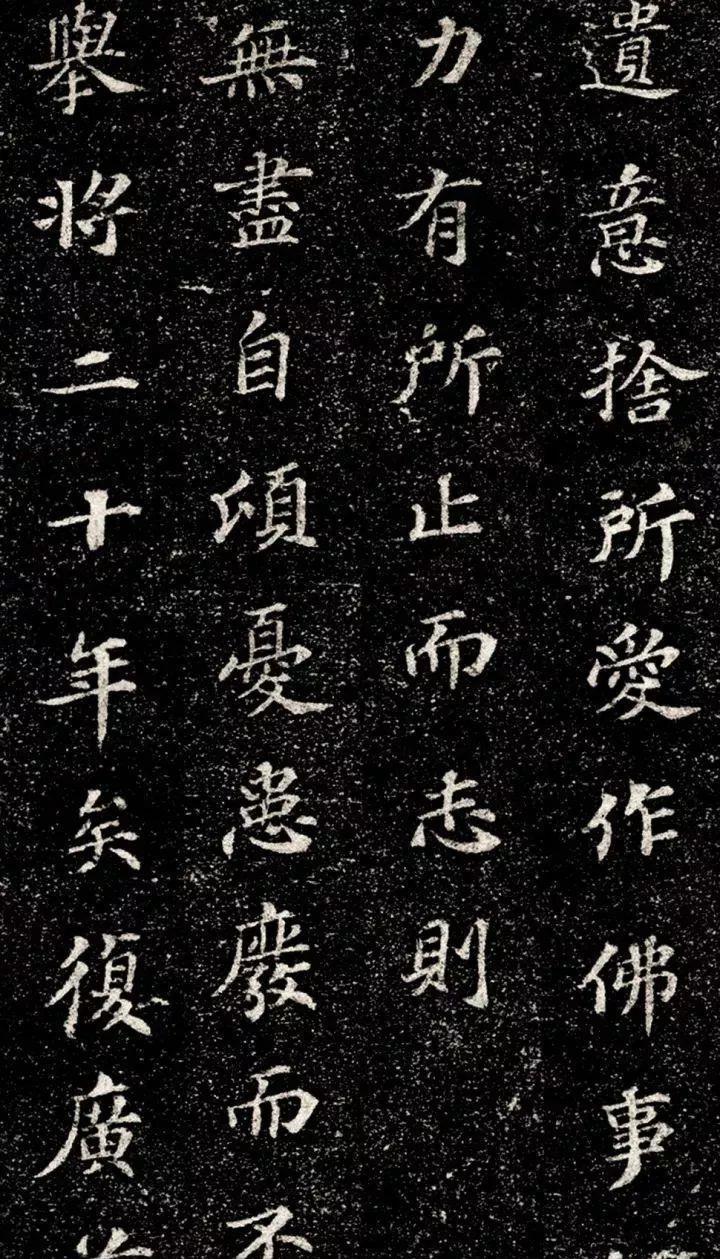 遺意捨所愛作佛事
力有所止而志則
無盡自頃憂患廢而不
舉將二十年矣復廣